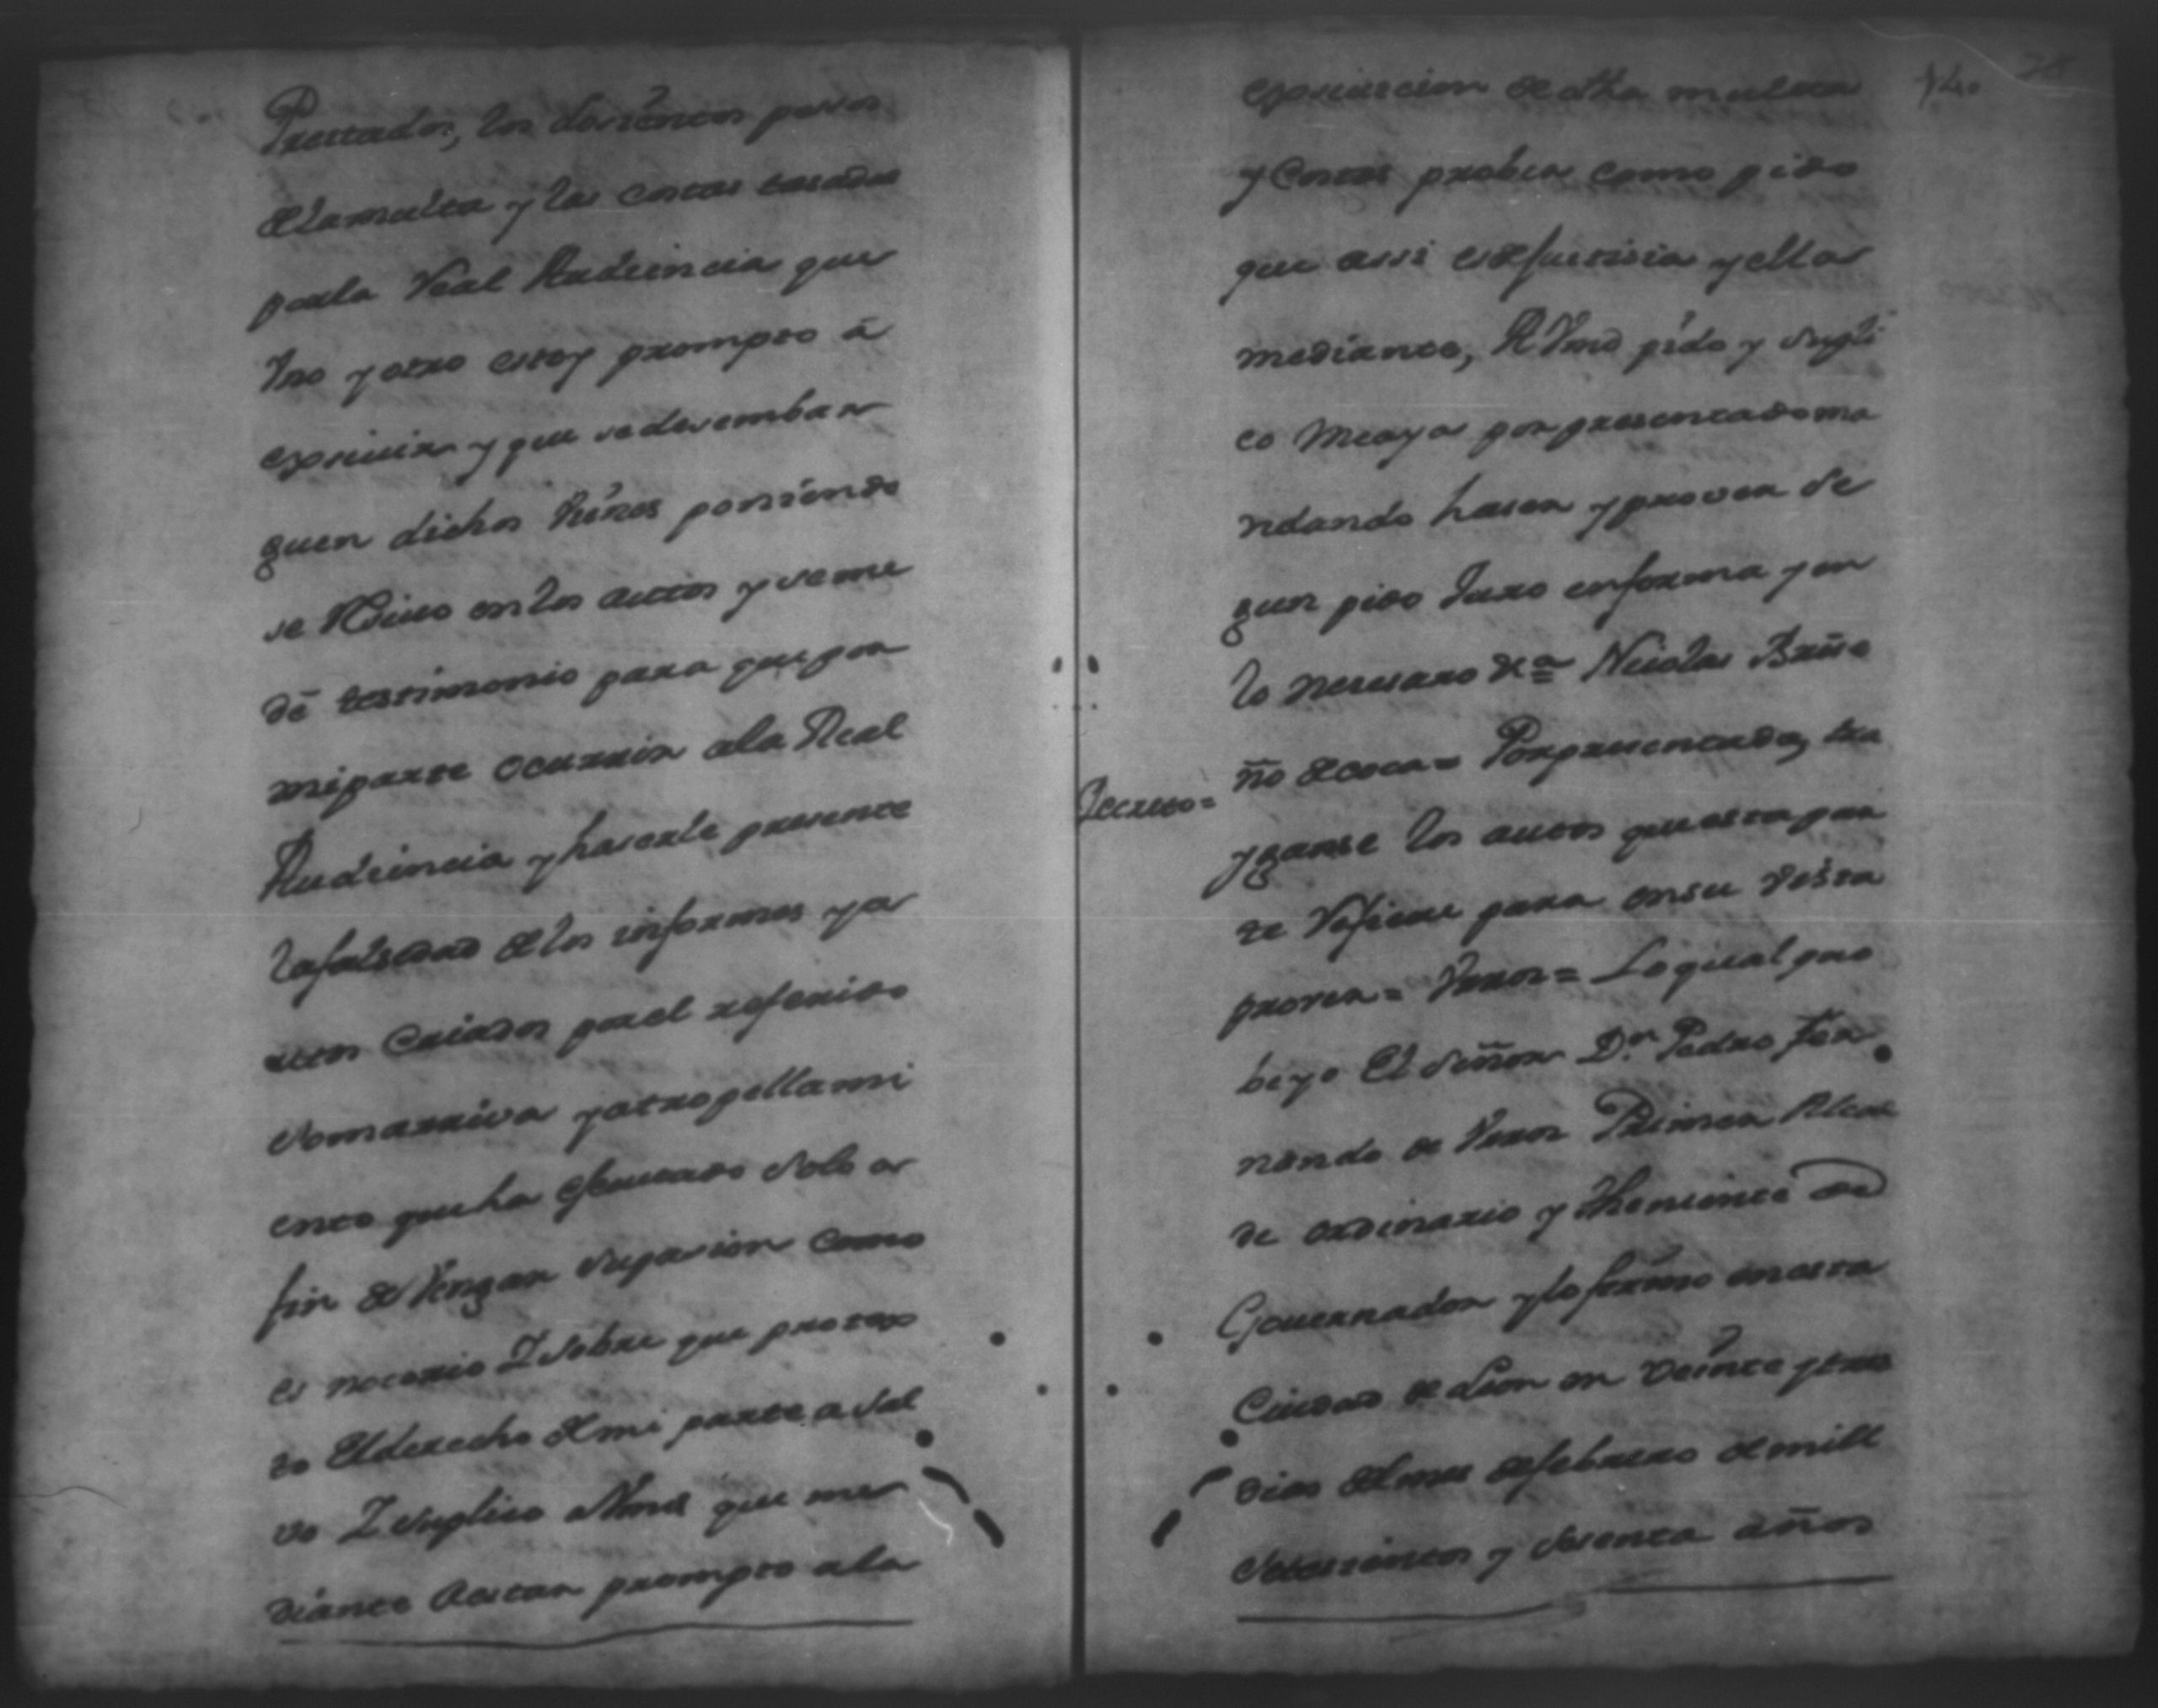 Prestados, los dosientos pesos
de la multa y las costas tasadas
por la Real Audiencia que
Vno y otro estoy prompto á
exsiuir y que se desembar
guen dichos vienes poniendo
se Reciuo en los autos y se me
dé testimonio para que por
mi parte ocurrir a la Real
Audiencia y haserle presente
la falsedad de los informes y a
utos criados por el referido
Somarriva y atropellami
ento que ha efecutado solo a
fin de Vengar su pasion como
es notorio I sobre que protex
to El derecho de mi parte a sal
vo I suplico a Vmd que me
diante a estar prompto a la
140
exsiuicion de dha multa
y Costas probea como pido
que assi es de justisia y ella
mediante, A Vmd pido y supli
co Me aya por presentado ma
ndando haser y proveer se
gun pido Juro en forma y en
lo nesesario &a = Nicolas Brise
ño de coca = Por presentada, tra
Decreto =
yganse los autos que esta par
te Refiere para en su vista
proveer = Veros = Lo qual pro
beyo El Señor Dn Pedro Fer
nando de Veros Primer Alcal
de ordinario y Theniente de
Gouernador y lo firmo en esta
Ciudad de Leon en veinte y tres
dias del mes de febrero de mill
Setesientos y sesenta años